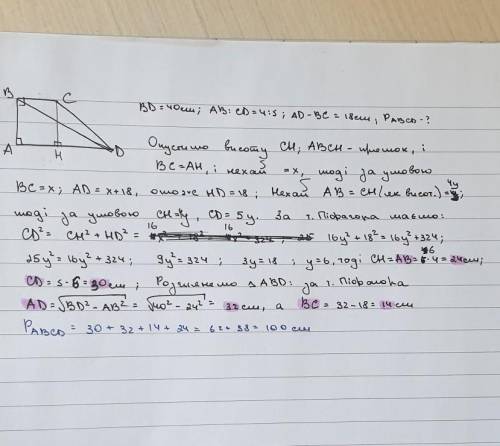 B C A H D
BD = 40см; AB:CD = 4:5; AD - BC = 18см, PABCD - ?
Опустимо висоту CH, ABCH - прямок, і
BC = AH, і нехай = x, тоді за умовою
BC = x; AD = x+18, отже HD = 18; Нехай AB = CH (як висот.) = 4y
тоді за умовою CH = 4y, CD = 5y. За т. Піфагора маємо:
CD² = CH² + HD² = 16y² + 18² = 16y² + 324;
25y² = 16y² + 324; 9y² = 324; 3y = 18; y = 6, тоді CH = AB = 6·4 = 24см;
CD = 5·6 = 30см; Розглянемо ΔABD: за т. Піфагора
AD = √BD² - AB² = √40² - 24² = 32см, а BC = 32 - 18 = 14см
PABCD = 30 + 32 + 14 + 24 = 62 + 38 = 100см